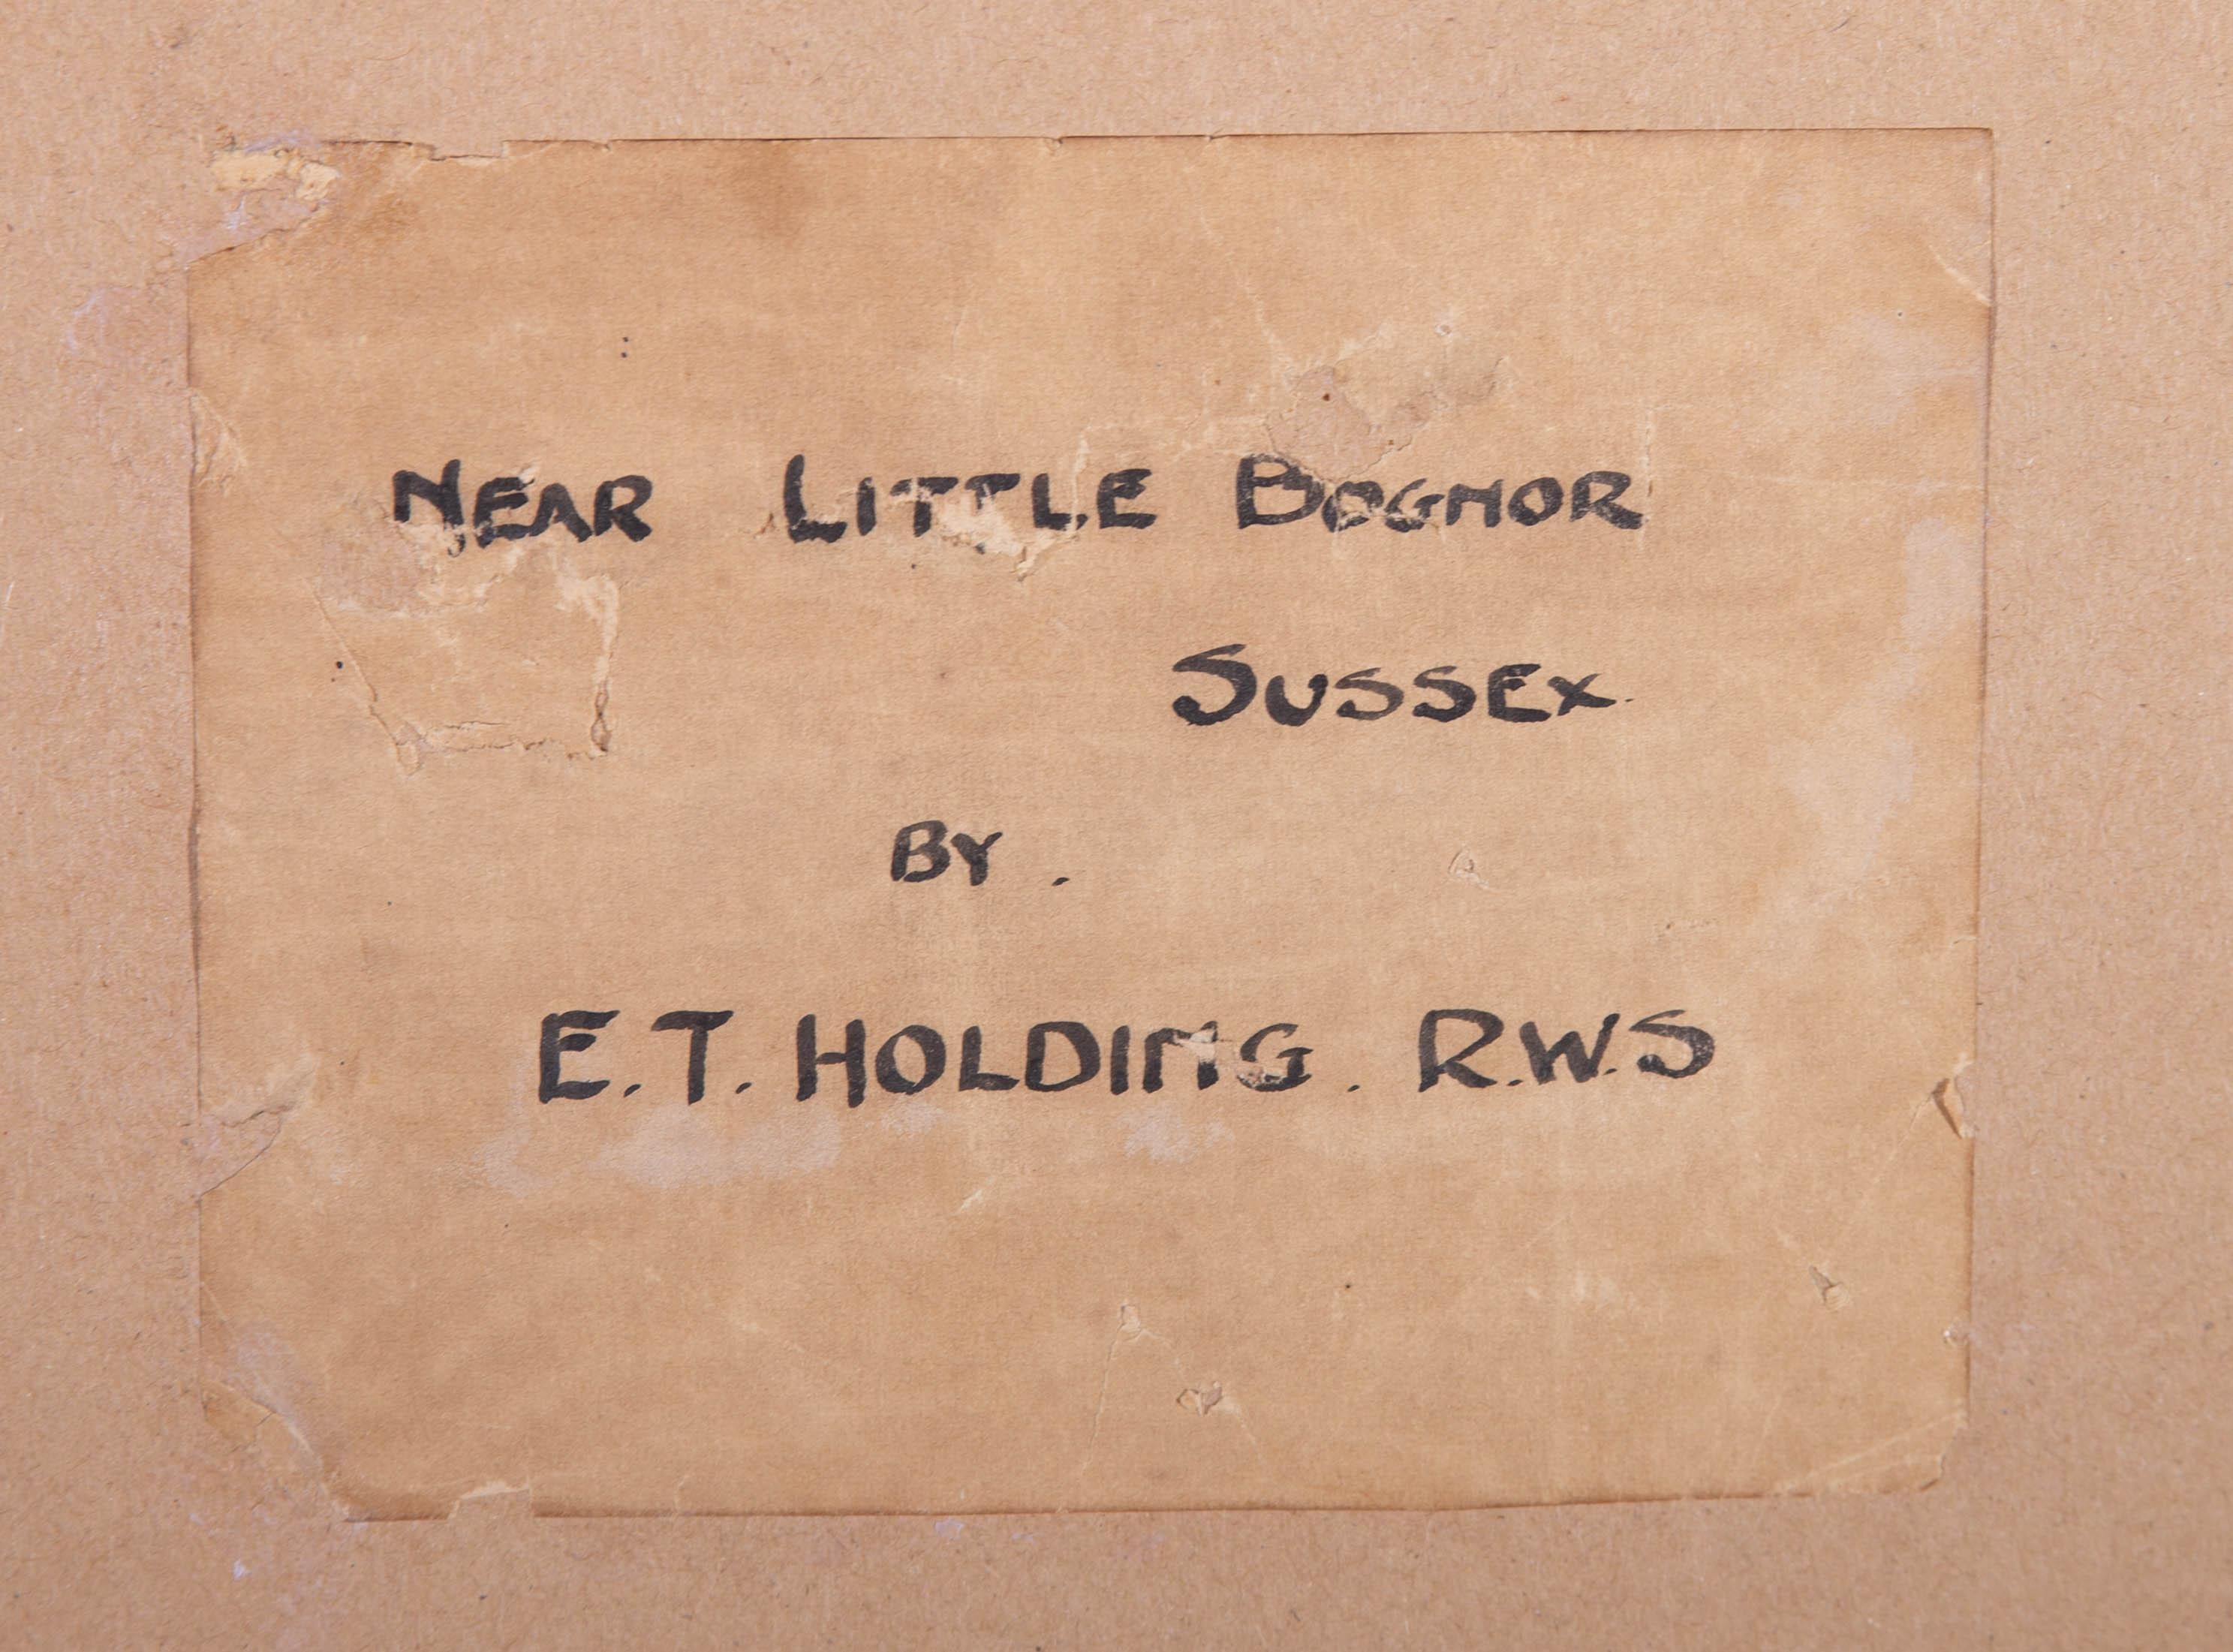 NEAR LITTLE BOGNOR
SUSSEX.
BY.
E.T. HOLDING. R.W.S